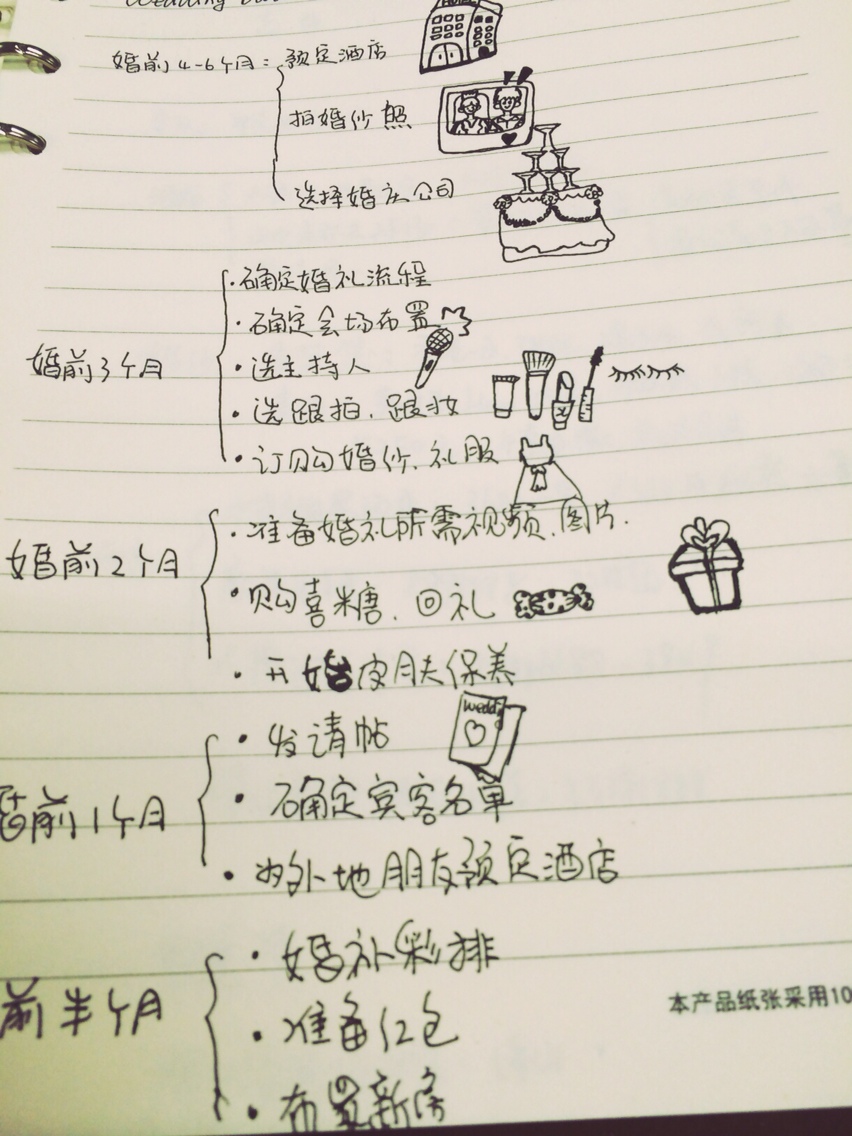 Wedding
HOTEL
婚前4-6个月：预定酒店
拍婚纱照
选择婚庆公司
·确定婚礼流程
·确定会场布置
婚前3个月
·选主持人
·选跟拍、跟妆
·订购婚纱、礼服
·准备婚礼所需视频、图片.
婚前2个月
·购喜糖、回礼
·开始皮肤保养
·发请帖
wedding
·确定宾客名单
婚前1个月
·为外地朋友预定酒店
·婚礼彩排
前半个月
本产品纸张采用10
·准备红包
·布置新房